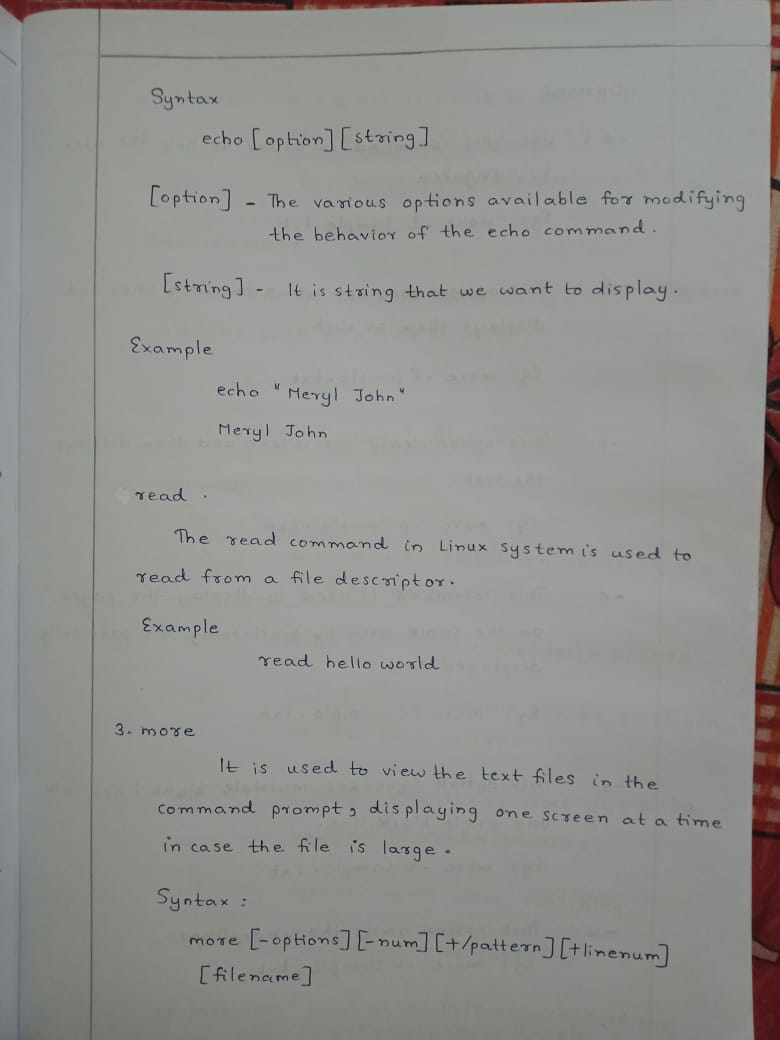 Syntax
echo [option] [string]
[option] - The various options available for modifying
the behavior of the echo command.
[string] - It is string that we want to display.
Example
echo "Meryl John"
Meryl John
read .
The read command in Linux system is used to
read from a file descriptor.
Example
read hello world
3. more
It is used to view the text files in the
command prompt, displaying one screen at a time
in case the file is large.
Syntax :
more [-options] [-num] [+/pattern] [+linenum]
[filename]